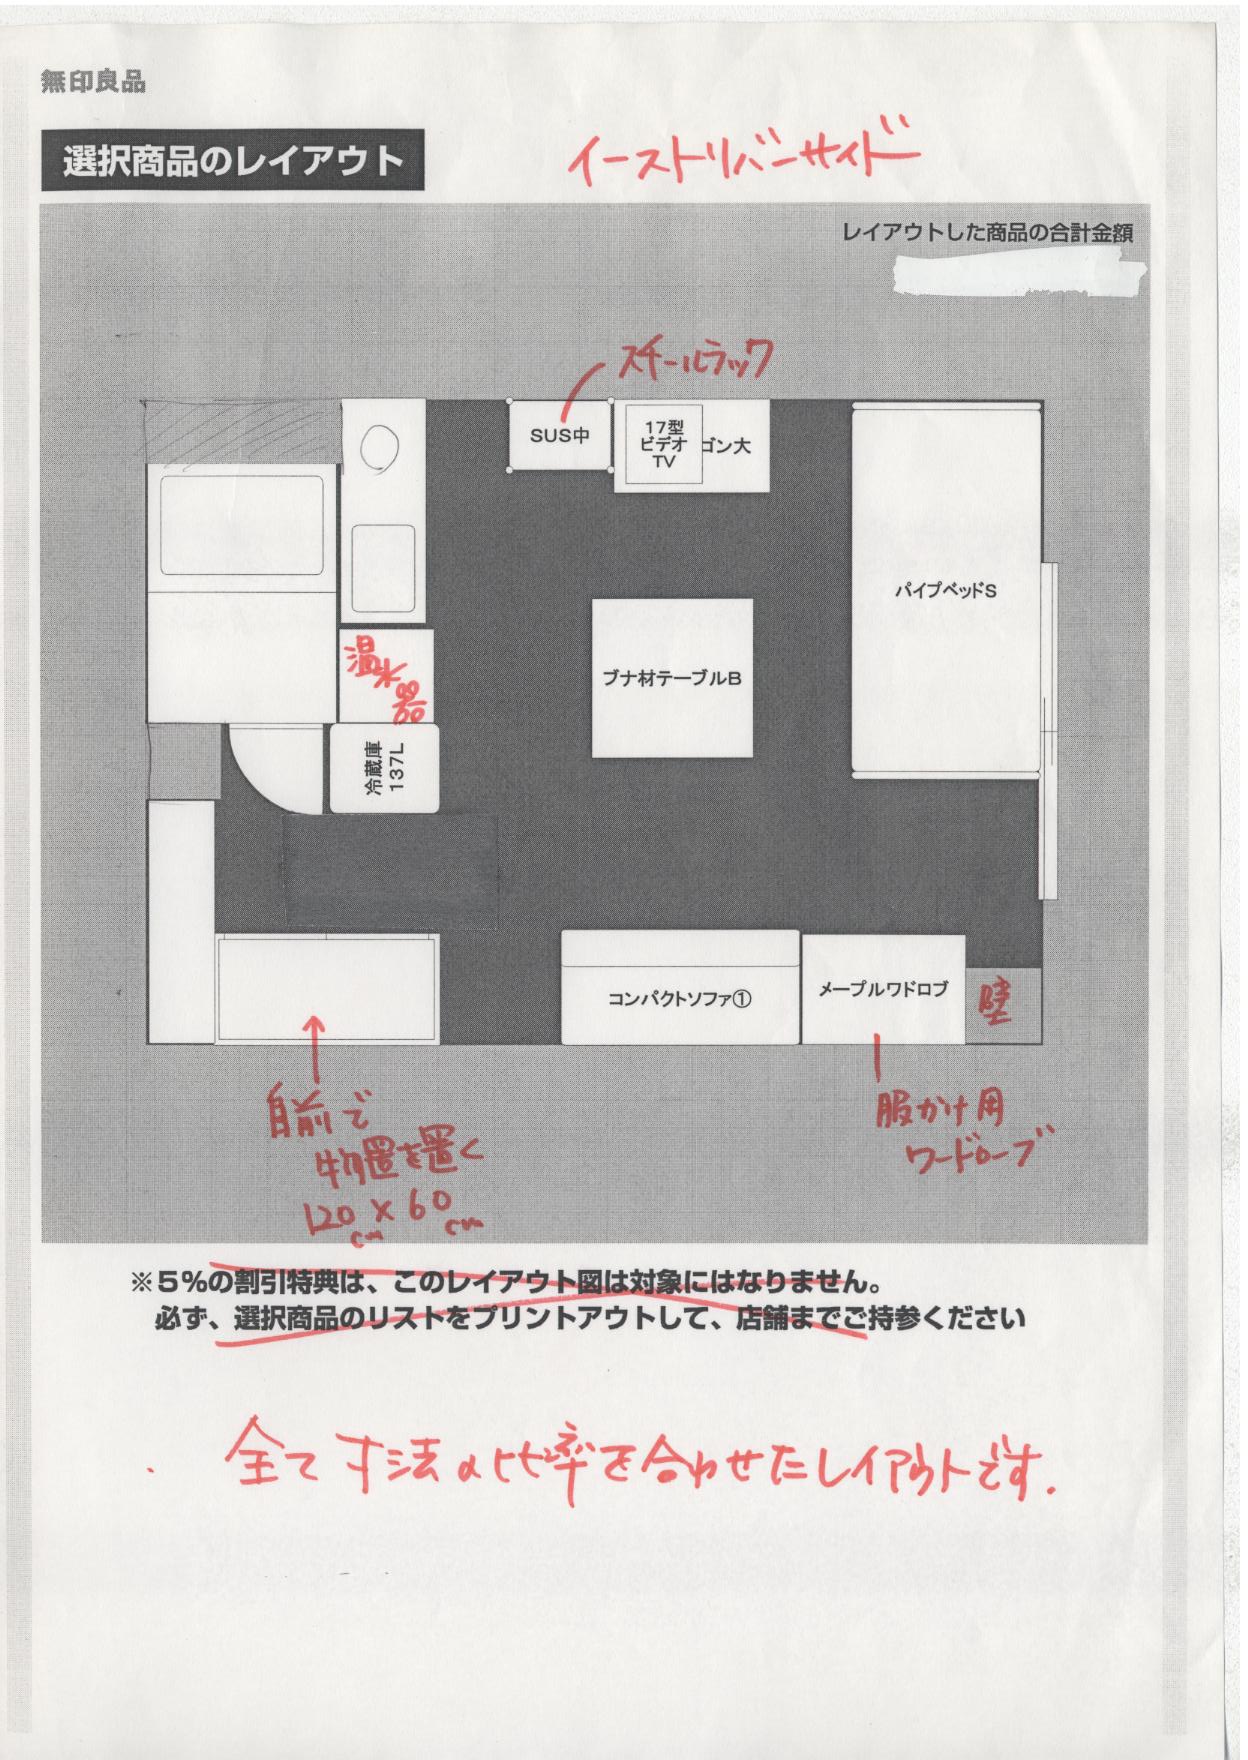 無印良品
選択商品のレイアウト
イーストリバーサイド
レイアウトした商品の合計金額
スチールラック
SUS中
17型
ビデオ
TV
ゴン大
パイプベッドS
温水器
ブナ材テーブルB
冷蔵庫
137L
コンパクトソファ①
メープルワドロブ
壁
自前で
物置を置く
120cm×60cm
服かけ用
ワードローブ
※5%の割引特典は、このレイアウト図は対象にはなりません。
必ず、選択商品のリストをプリントアウトして、店舗までご持参ください
全て寸法の比率を合わせたレイアウトです.